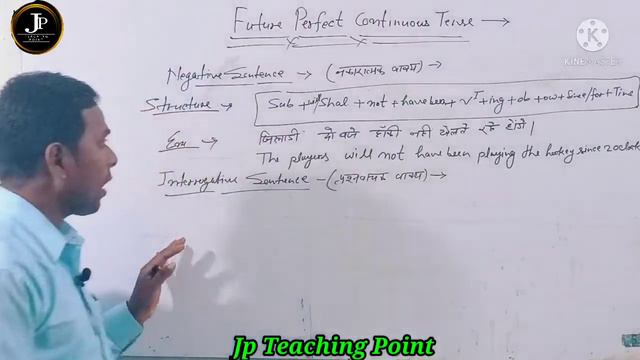 JP
TEACHING POINT
Future Perfect Continuous Tense →
KINEMASTER
Negative Sentence → (नकारात्मक वाक्य) →
Structure → Sub + will/Shal + not + have been + V¹ + ing + ob + ow + Since/for + Time
Exm → खिलाडी दो बजे हॉकी नही खेलते रहे होंगे।
The players will not have been playing the hockey since 2 oclock
Interrogative Sentence - (प्रश्नवाचक वाक्य) →
Jp Teaching Point